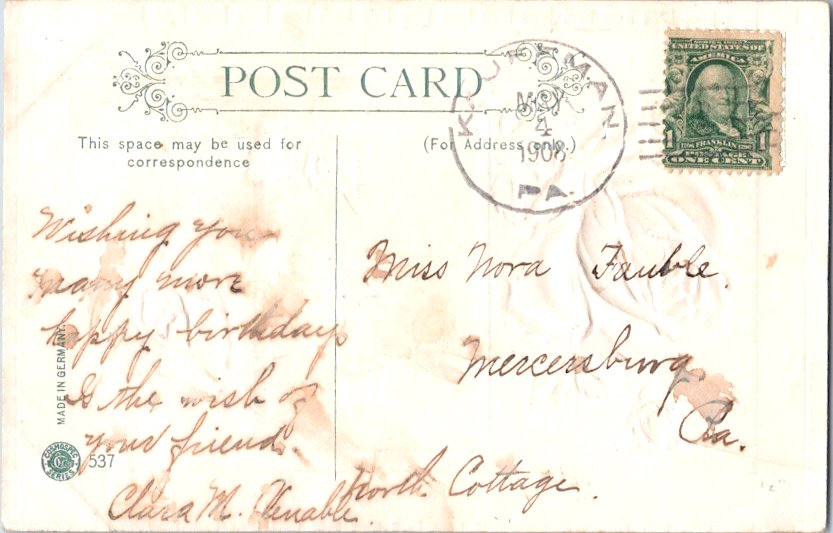 POST CARD
This space may be used for
correspondence
(For Address only.)
KAUFFMAN.
MAY
4
1908
PA.
UNITED STATES OF
AMERICA
1
FRANKLIN
1
POSTAGE
ONE CENT
Wishing you
many more
happy birthdays
Is the wish of
your friend.
Clara M. Venable.
Miss Nora Fauble.
Mercersburg
Pa.
North Cottage.
MADE IN GERMANY.
COSMOS
SERIES
537